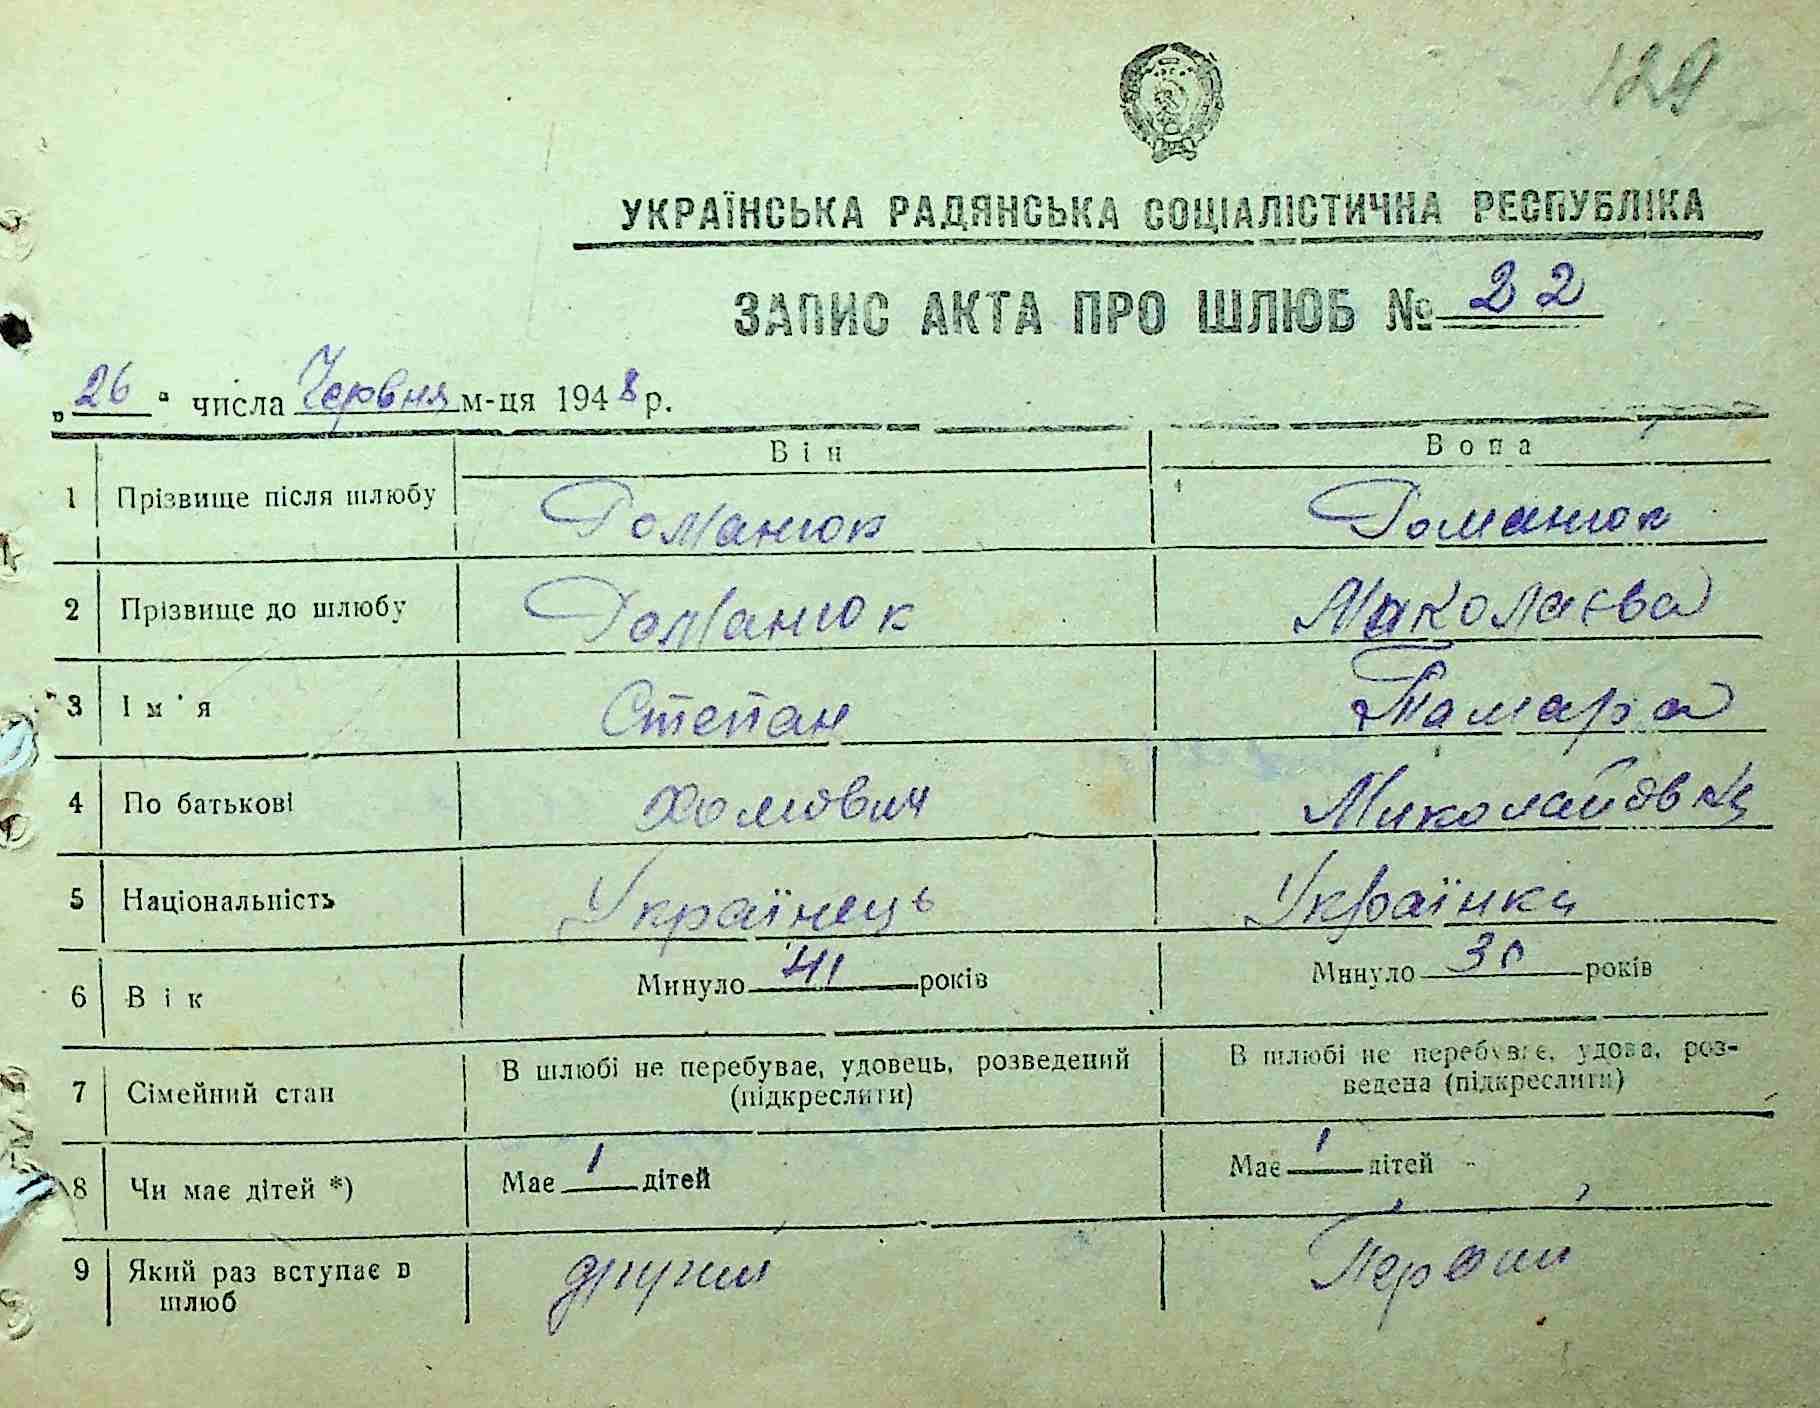 129
УКРАЇНСЬКА РАДЯНСЬКА СОЦІАЛІСТИЧНА РЕСПУБЛІКА
ЗАПИС АКТА ПРО ШЛЮБ № 22
„26“ числа Червня м-ця 1948 р.
Він Вона
1 Прізвище після шлюбу Романюк Романюк
2 Прізвище до шлюбу Романюк Миколаєва
3 Ім'я Степан Тамара
4 По батькові Хомович Миколаївна
5 Національність Українець Українка
6 Вік Минуло 41 років Минуло 30 років
7 Сімейний стан В шлюбі не перебуває, удовець, розведений (підкреслити) В шлюбі не перебуває, удова, роз-
ведена (підкреслити)
8 Чи має дітей *) Має 1 дітей Має 1 дітей
9 Який раз вступає в другий Первий
шлюб